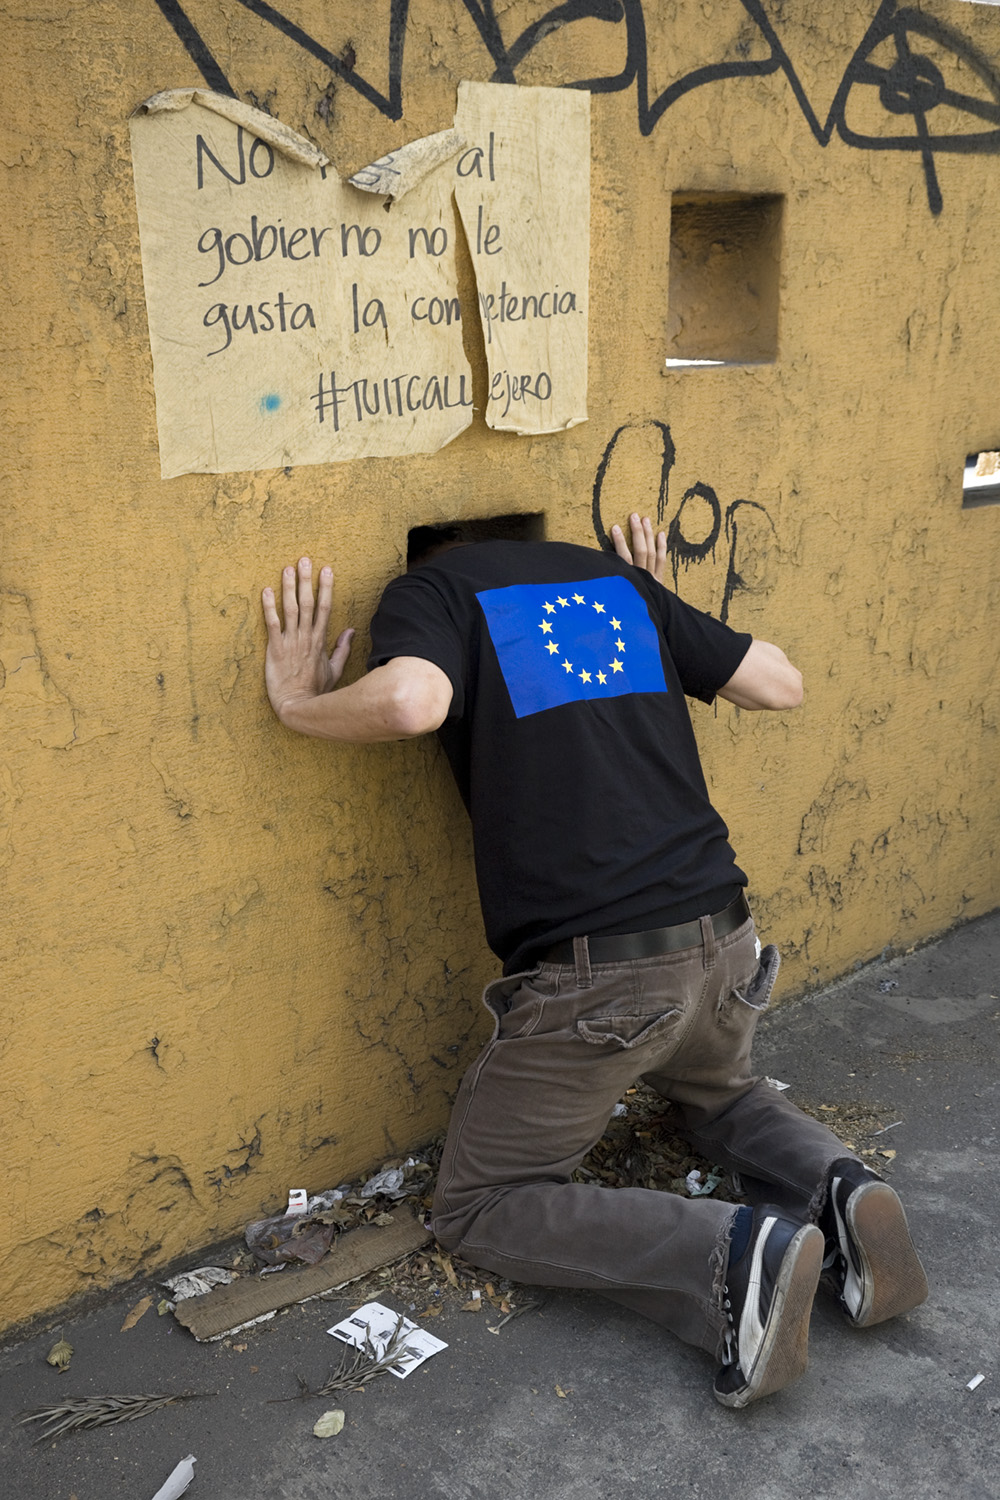 No al
gobierno no le
gusta la competencia.
#TUITCALLEJERO